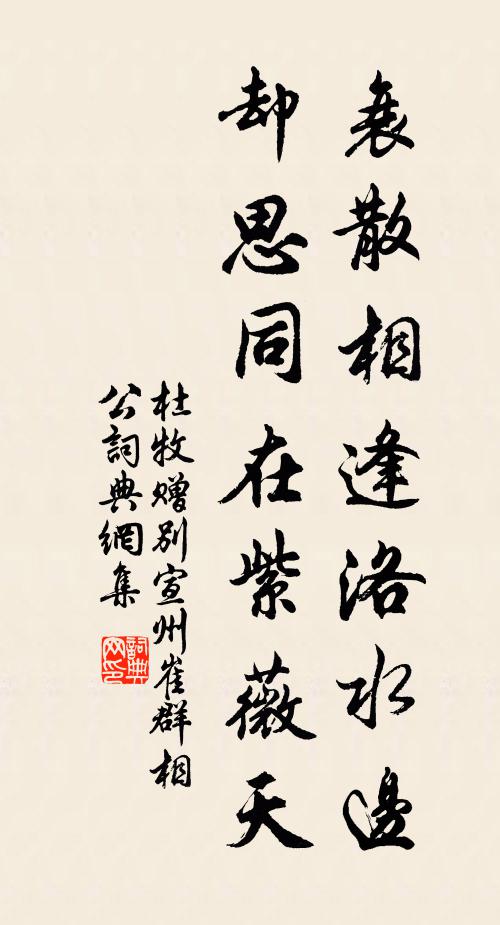 衰散相逢洛水邊
却思同在紫薇天
杜牧赠别宣州崔群相
公詞典網集
詞典
网印